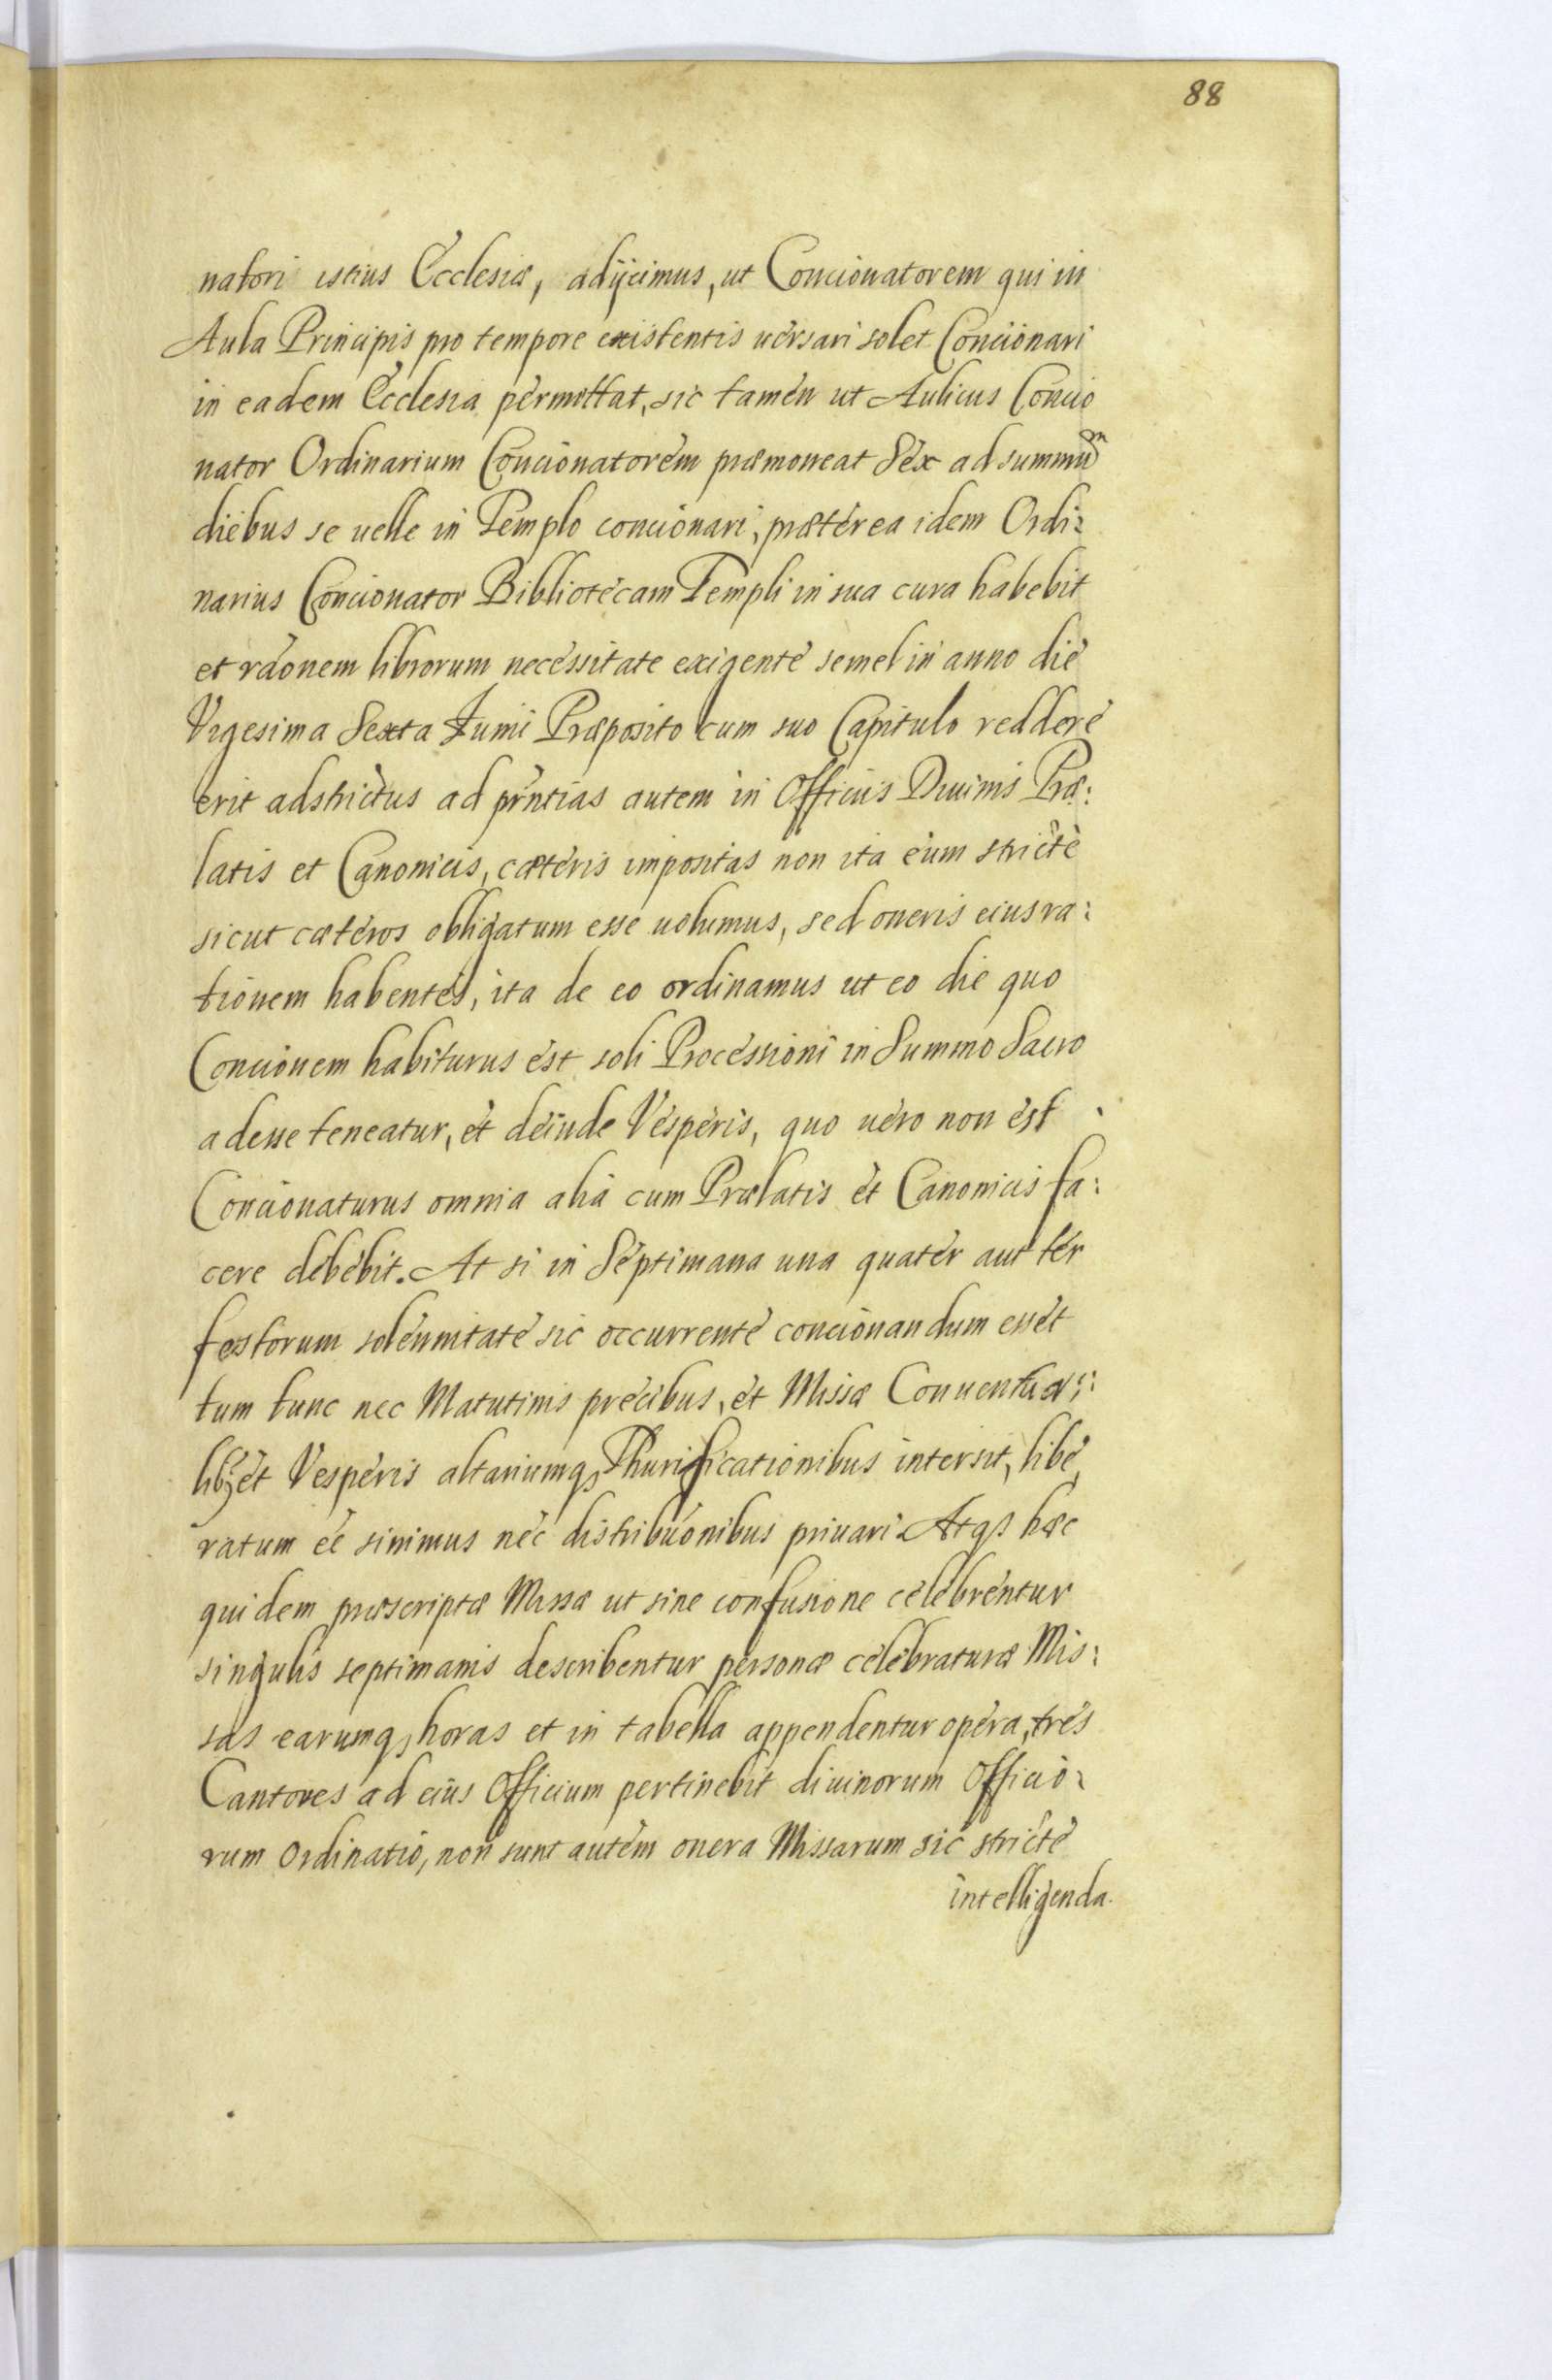 88
natori istius Ecclesiæ, adijcimus, ut Concionatorem qui in
Aula Principis pro tempore existentis uersari solet Concionari
in eadem Ecclesia permittat, sic tamen ut Aulicus Concio
nator Ordinarium Concionatorem præmoneat Sex ad summũm
diebus se uelle in Templo concionari, præterea idem Ordi:
narius Concionator Bibliotecam Templi in sua cura habebit
et rãonem librorum necessitate exigente semel in anno die
Vigesima Sexta Junii Præposito cum suo Capitulo reddere
erit adstrictus ad prñtias autem in Officiis Diuinis Præ:
latis et Canonicis, cæteris impositas non ita eum stricte
sicut cæteros obligatum esse uolumus, sed oneris eius ra:
tionem habentes, ita de eo ordinamus ut eo die quo
Concionem habiturus est soli Processioni in Summo Sacro
adesse teneatur, et deinde Vesperis, quo uero non est
Concionaturus omnia alia cum Prælatis et Canonicis fa:
cere debebit. At si in Septimana una quater aut ter
festorum solennitate sic occurrente concionandum esset
tum tunc nec Matutinis precibus, et Missæ Conuentua:
lib₃ et Vesperis altariumq₃ Thurificationibus intersit, libe,
ratum eẽ sinimus nec distribuõnibus priuari. Atq₃ hæc
quidem præscriptæ Missæ ut sine confusione celebrentur
singulis septimanis describentur personæ celebraturæ Mis:
sas earumq₃ horas et in tabella appendentur opera, tres
Cantores ad eius Officium pertinebit diuinorum Officio:
rum Ordinatio, non sunt autem onera Missarum sic stricte
intelligenda.